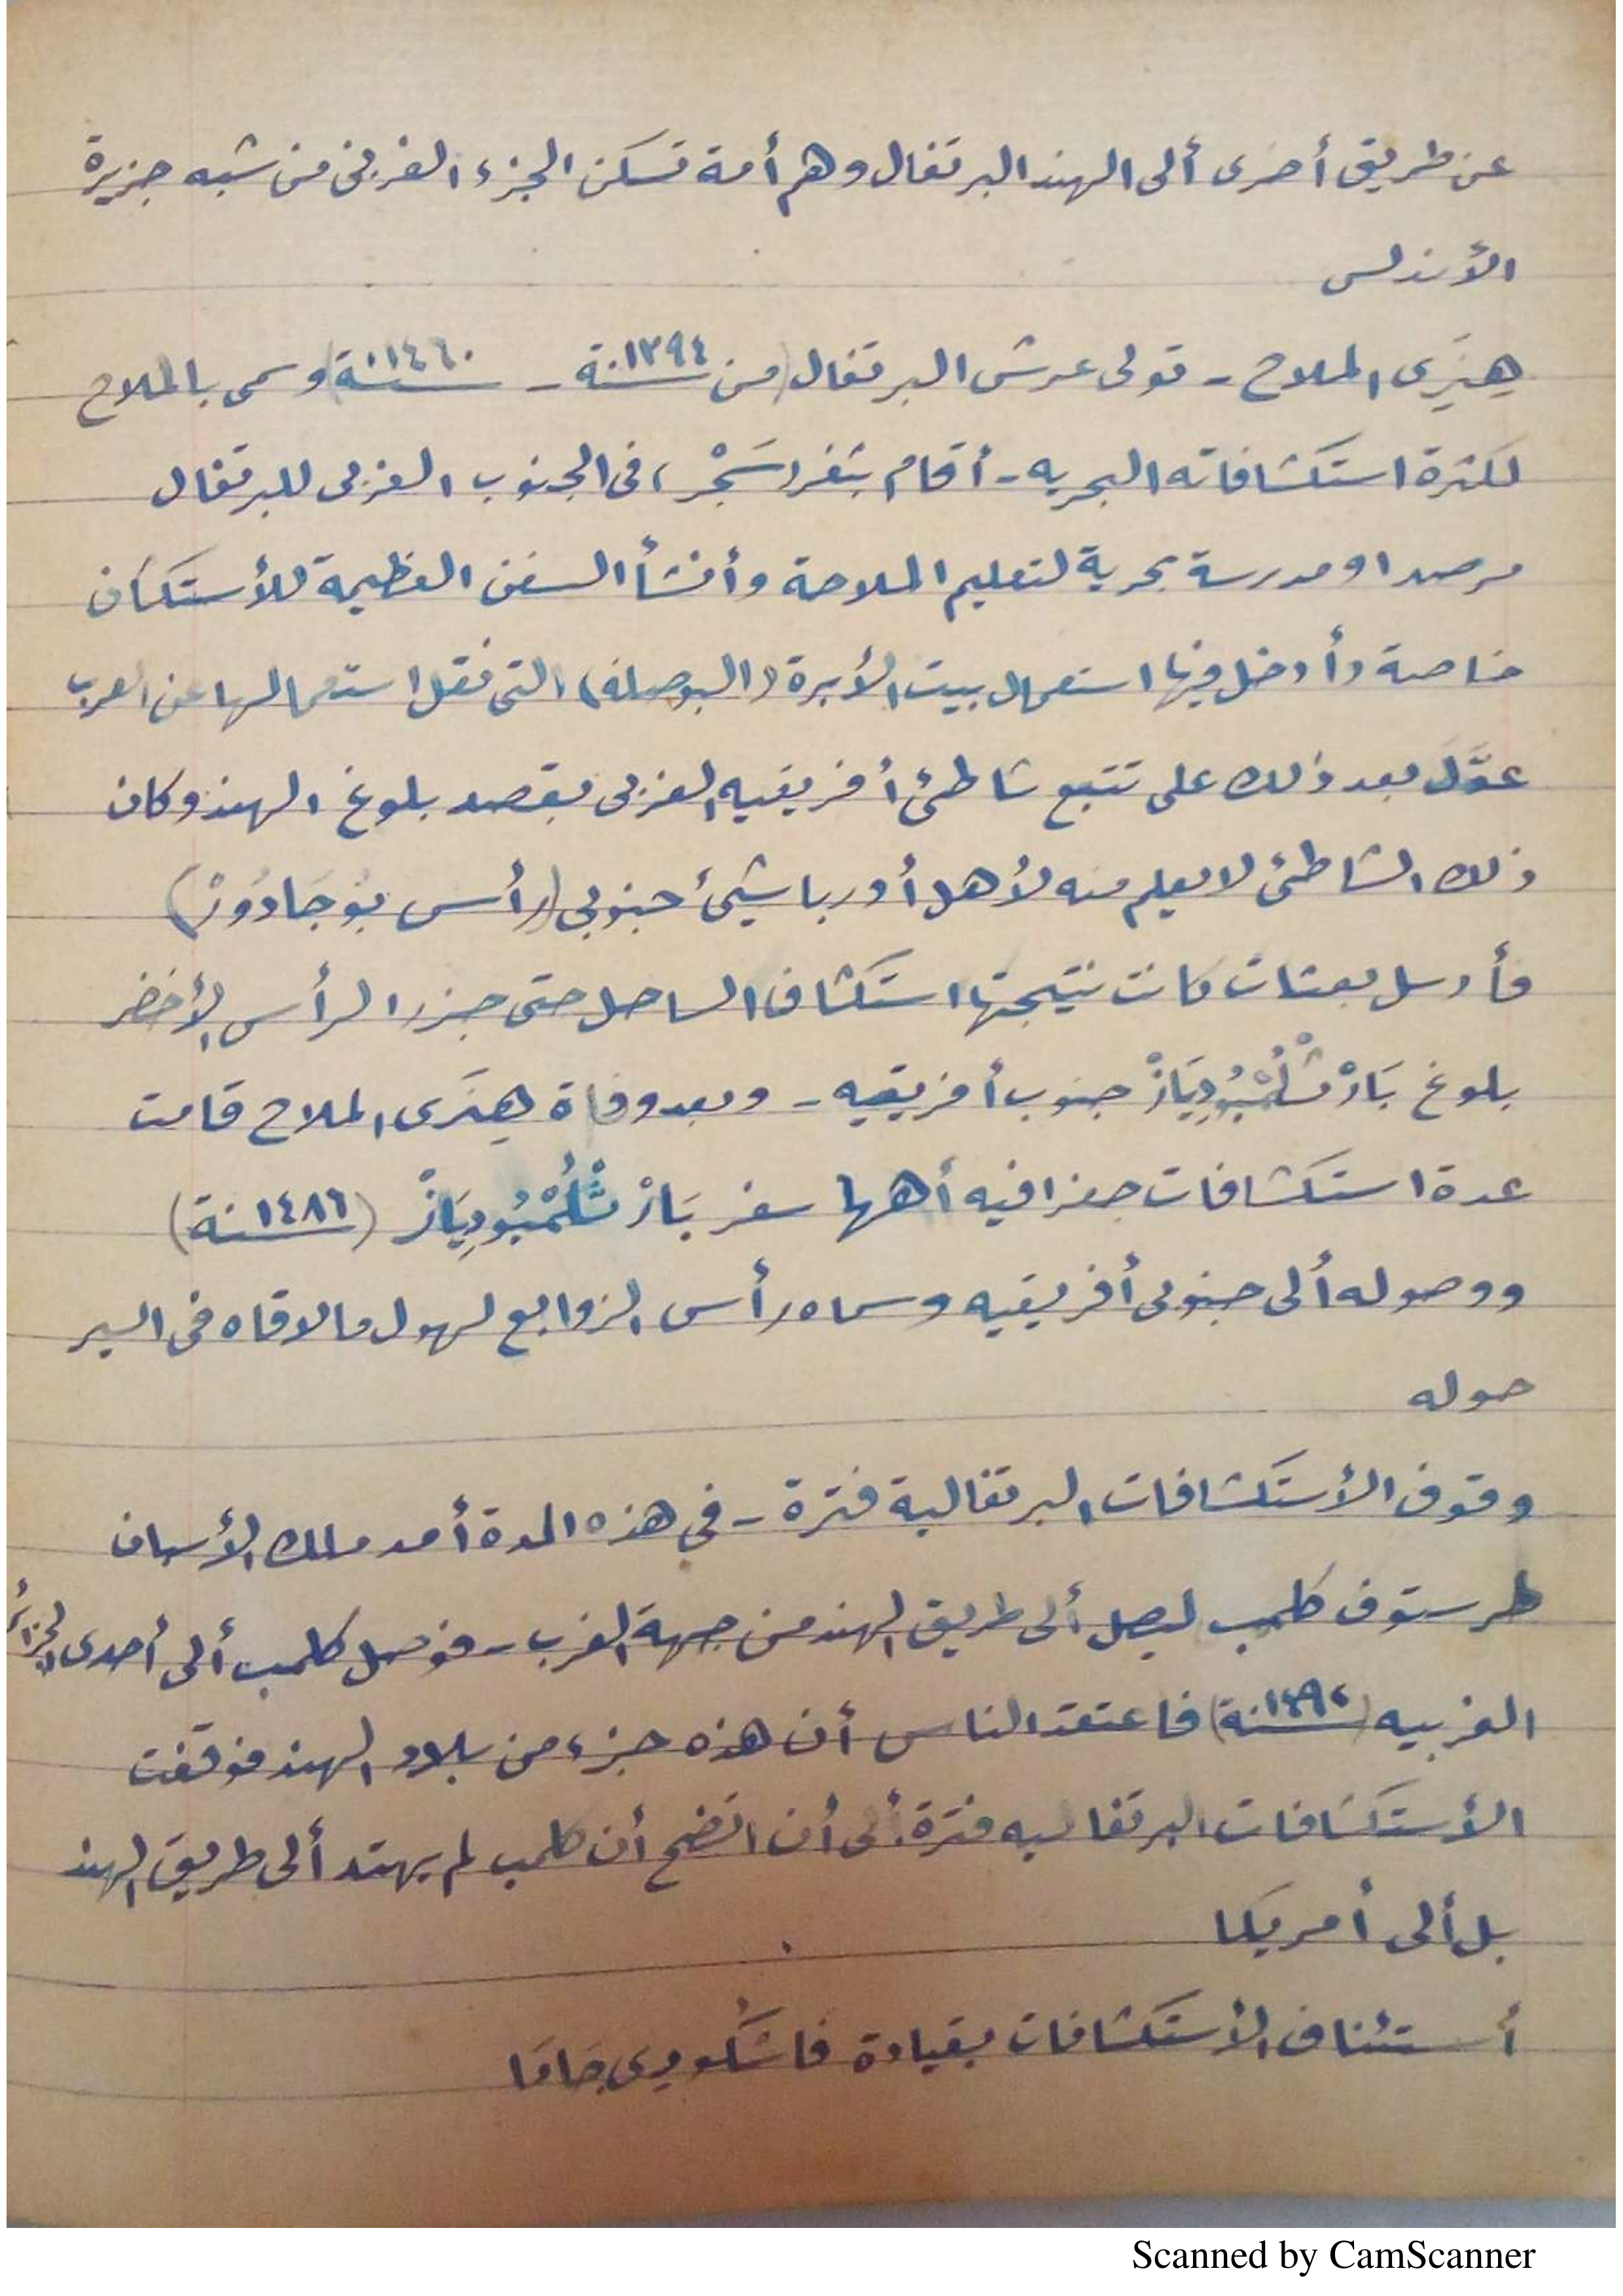 عن طريق أخرى ألى الهند البرتغال وهم أمة تسكن الجزء الغربى من شبه جزيرة
الأندلس
هِنَرِى الملاح - تولى عرش البرتغال (من سنة ١٣٩٤ - سنة ١٤٦٠) وسمى بالملاح
لكثرة استكشافاته البحريه - أقام بثغر سَجْر، فى الجنوب الغربى للبرتغال
مرصدا ومدرسة بحرية لتعليم الملاحة وأنشأ السفن العظيمة للأستكشاف
خاصة وأدخل فيها استعمال بيت الأبرة (البوصله) التى نقل استعمالها عن العرب
عوَّل بعد ذلك على تتبع شاطئ أفريقيه الغربى بقصد بلوغ الهند وكان
ذلك الشاطئ لا يعلم منه لأهل أوربا شيئ جنوبى (رأس بُوجَادُورْ)
فأرسل بعثات كانت نتيجتها استكشاف الساحل حتى جزر الرأس الأخضر
بلوغ بَارْثُلُمْيُودِيَازْ جنوب أفريقيه - وبعد وفاة هِنَرى الملاح قامت
عدة استكشافات جغرافيه أهمها سفر بَارْثُلُمْيُودِيَازْ (سنة ١٤٨٦)
ووصوله ألى جنوبى أفريقيه وسماه رأس الزوابع لهول ما لاقاه فى السير
حوله
وقوف الأستكشافات البرتغالية فترة - فى هذه المدة أمد ملك الأسبان
كرستوف كلمب ليصل ألى طريق الهند من جهة الغرب - فوصل كلمب ألى أحدى الجزائر
الغربيه (سنة ١٤٩٢) فاعتقد الناس أن هذه جزء من بلاد الهند فوقفت
الأستكشافات البرتغاليه فترة ألى أن اتضح أن كلمب لم يهتد ألى طريق الهند
بل ألى أمريكا
أستئناف الأستكشافات بقيادة فاسْكُودِى جَامَا
Scanned by CamScanner